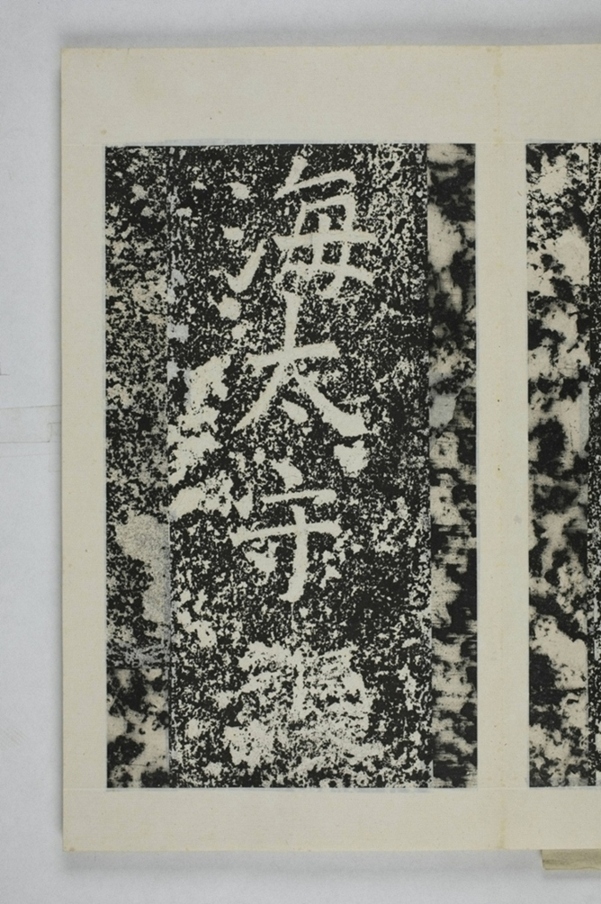 海太守